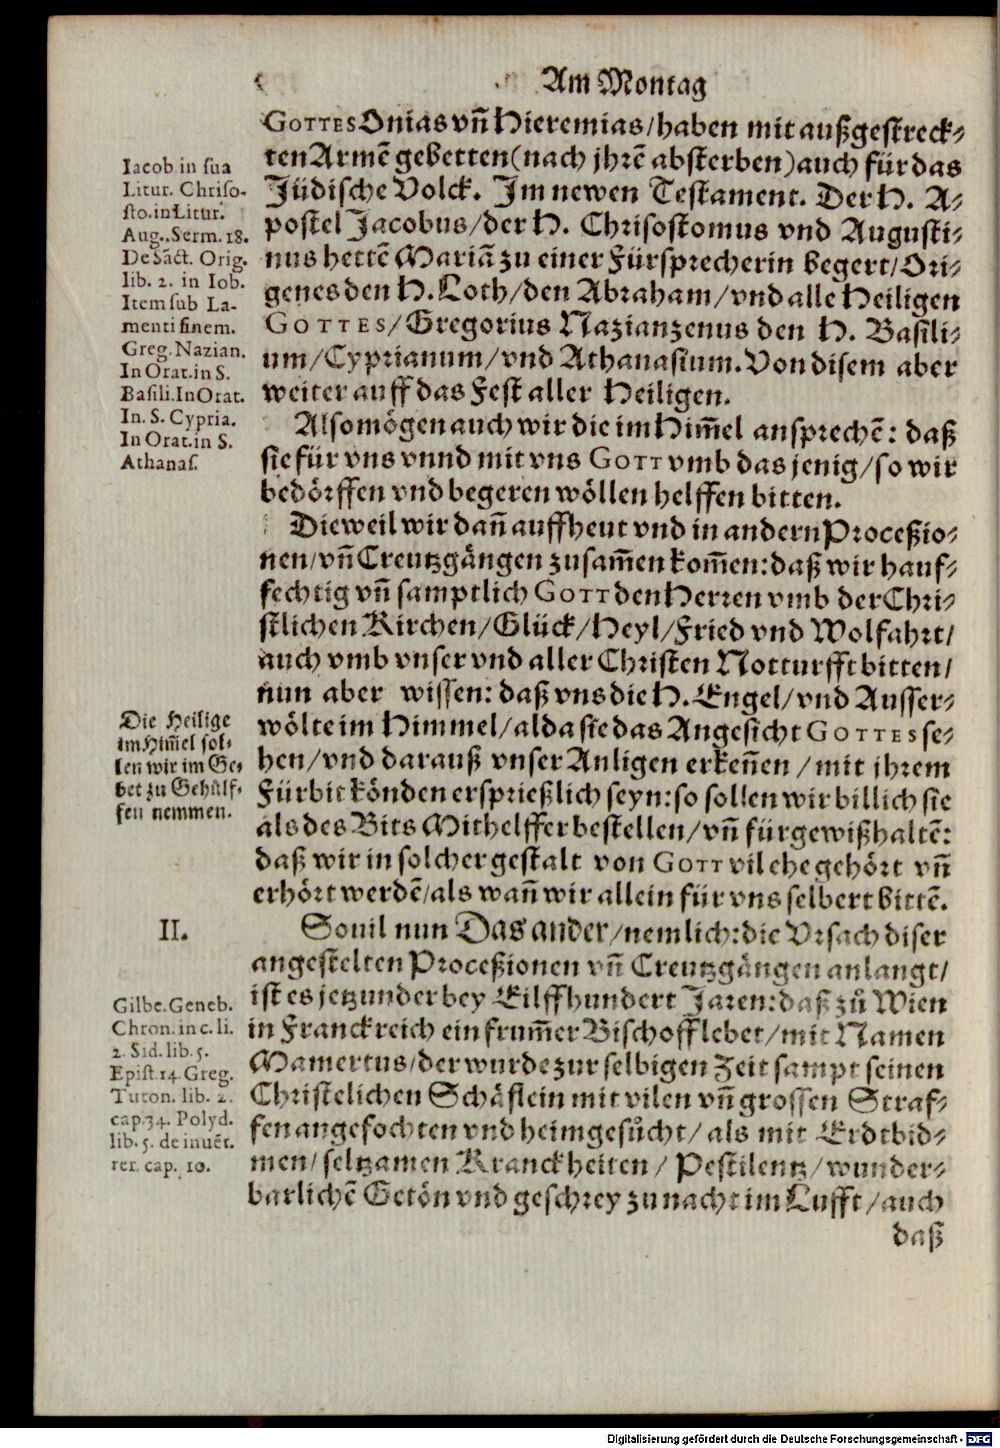 Am Montag
GOTTES Onias vñ Hieremias/haben mit außgestreck-
ten Armē gebetten(nach jhrē absterben)auch für das
Jüdische Volck. Im newen Testament. Der H. A-
postel Jacobus/der H. Chrisostomus vnd Augusti-
nus hettē Mariā zu einer Fürsprecherin begert/Ori-
genes den H. Loth/den Abraham/vnd alle Heiligen
GOTTES/Gregorius Nazianzenus den H. Basili-
um/Cyprianum/vnd Athanasium. Von disem aber
weiter auff das Fest aller Heiligen.
Iacob in sua
Litur. Chriso-
sto. in Litur.
Aug. Serm. 18.
De Sāct. Orig.
lib. 2. in Iob.
Item sub La-
menti finem.
Greg. Nazian.
In Orat. in S.
Basili. In Orat.
In. S. Cypria.
In Orat. in S.
Athanas.
Also mögen auch wir die im Him̃el ansprechē: daß
sie für vns vnnd mit vns GOTT vmb das jenig/so wir
bedörffen vnd begeren wöllen helffen bitten.
Dieweil wir dañ auff heut vnd in andern Proceßio-
nen/vñ Creutzgängen zusam̃en kom̃en: daß wir hauf-
fechtig vñ samptlich GOTT den Herren vmb der Chri-
stlichen Kirchen/Glück/Heyl/Fried vnd Wolfahrt/
auch vmb vnser vnd aller Christen Notturfft bitten/
nun aber wissen: daß vns die H. Engel/vnd Ausser-
wölte im Himmel/alda sie das Angesicht GOTTES se-
hen/vnd darauß vnser Anligen erkeñen/mit jhrem
Fürbit könden ersprießlich seyn: so sollen wir billich sie
als des Bits Mithelffer bestellen/vñ für gewiß haltē:
daß wir in solcher gestalt von GOTT vil ehe gehört vñ
erhört werdē/als wañ wir allein für vns selber bittē.
Die Heilige
im Him̃el sol-
len wir im Ge-
bet zu Gehülf-
fen nemmen.
II.
Souil nun Das ander/nemlich: die Vrsach diser
angestelten Proceßionen vñ Creutzgängen anlangt/
ist es jetzunder bey Eilffhundert Jaren: daß zů Wien
in Franckreich ein frum̃er Bischoff lebet/mit Namen
Mamertus/der wurde zur selbigen Zeit sampt seinen
Christelichen Schäflein mit vilen vñ grossen Straf-
fen angefochten vnd heimgesůcht/als mit Erdtbid-
men/seltzamen Kranckheiten/Pestilentz/wunder-
barlichē Getön vnd geschrey zu nacht im Lufft/auch
Gilbe. Geneb.
Chron. in c. li.
2. Sid. lib. 5.
Epist. 14. Greg.
Turon. lib. 2.
cap. 34. Polyd.
lib. 5. de inuēt.
rer. cap. 10.
daß
Digitalisierung gefördert durch die Deutsche Forschungsgemeinschaft - DFG